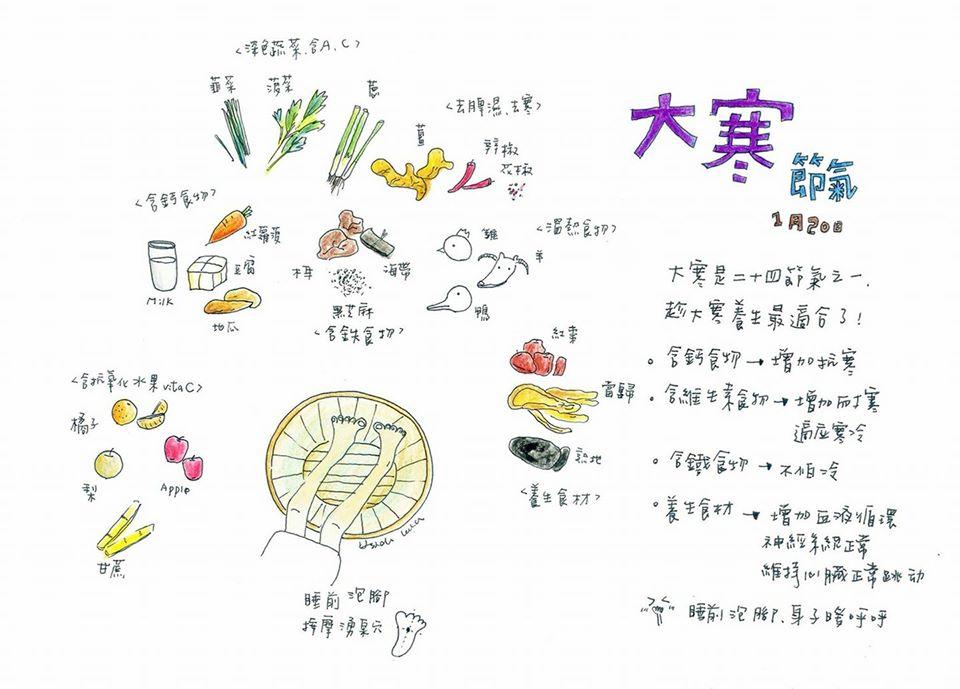 <深色蔬菜.含A、C>
韮菜
菠菜
蔥
<去脾濕、去寒>
薑
辣椒
花椒
<含鈣食物>
紅蘿蔔
Milk
豆腐
地瓜
木耳
海帶
黑芝麻
<含鉄食物>
<溫熱食物>
雞
羊
鴨
<含抗氧化水果 vita C>
橘子
梨
Apple
甘蔗
紅棗
當歸
熟地
<養生食材>
睡前泡腳
按摩湧泉穴
大寒
節氣
1月20日
大寒是二十四節氣之一.
趁大寒養生最適合了!
• 含鈣食物→增加抗寒
• 含維生素食物→增加耐寒
適應寒冷
• 含鐵食物→不怕冷
• 養生食材→增加血液循環
神經系統正常
維持心臟正常跳动
睡前泡腳、身子暖呼呼